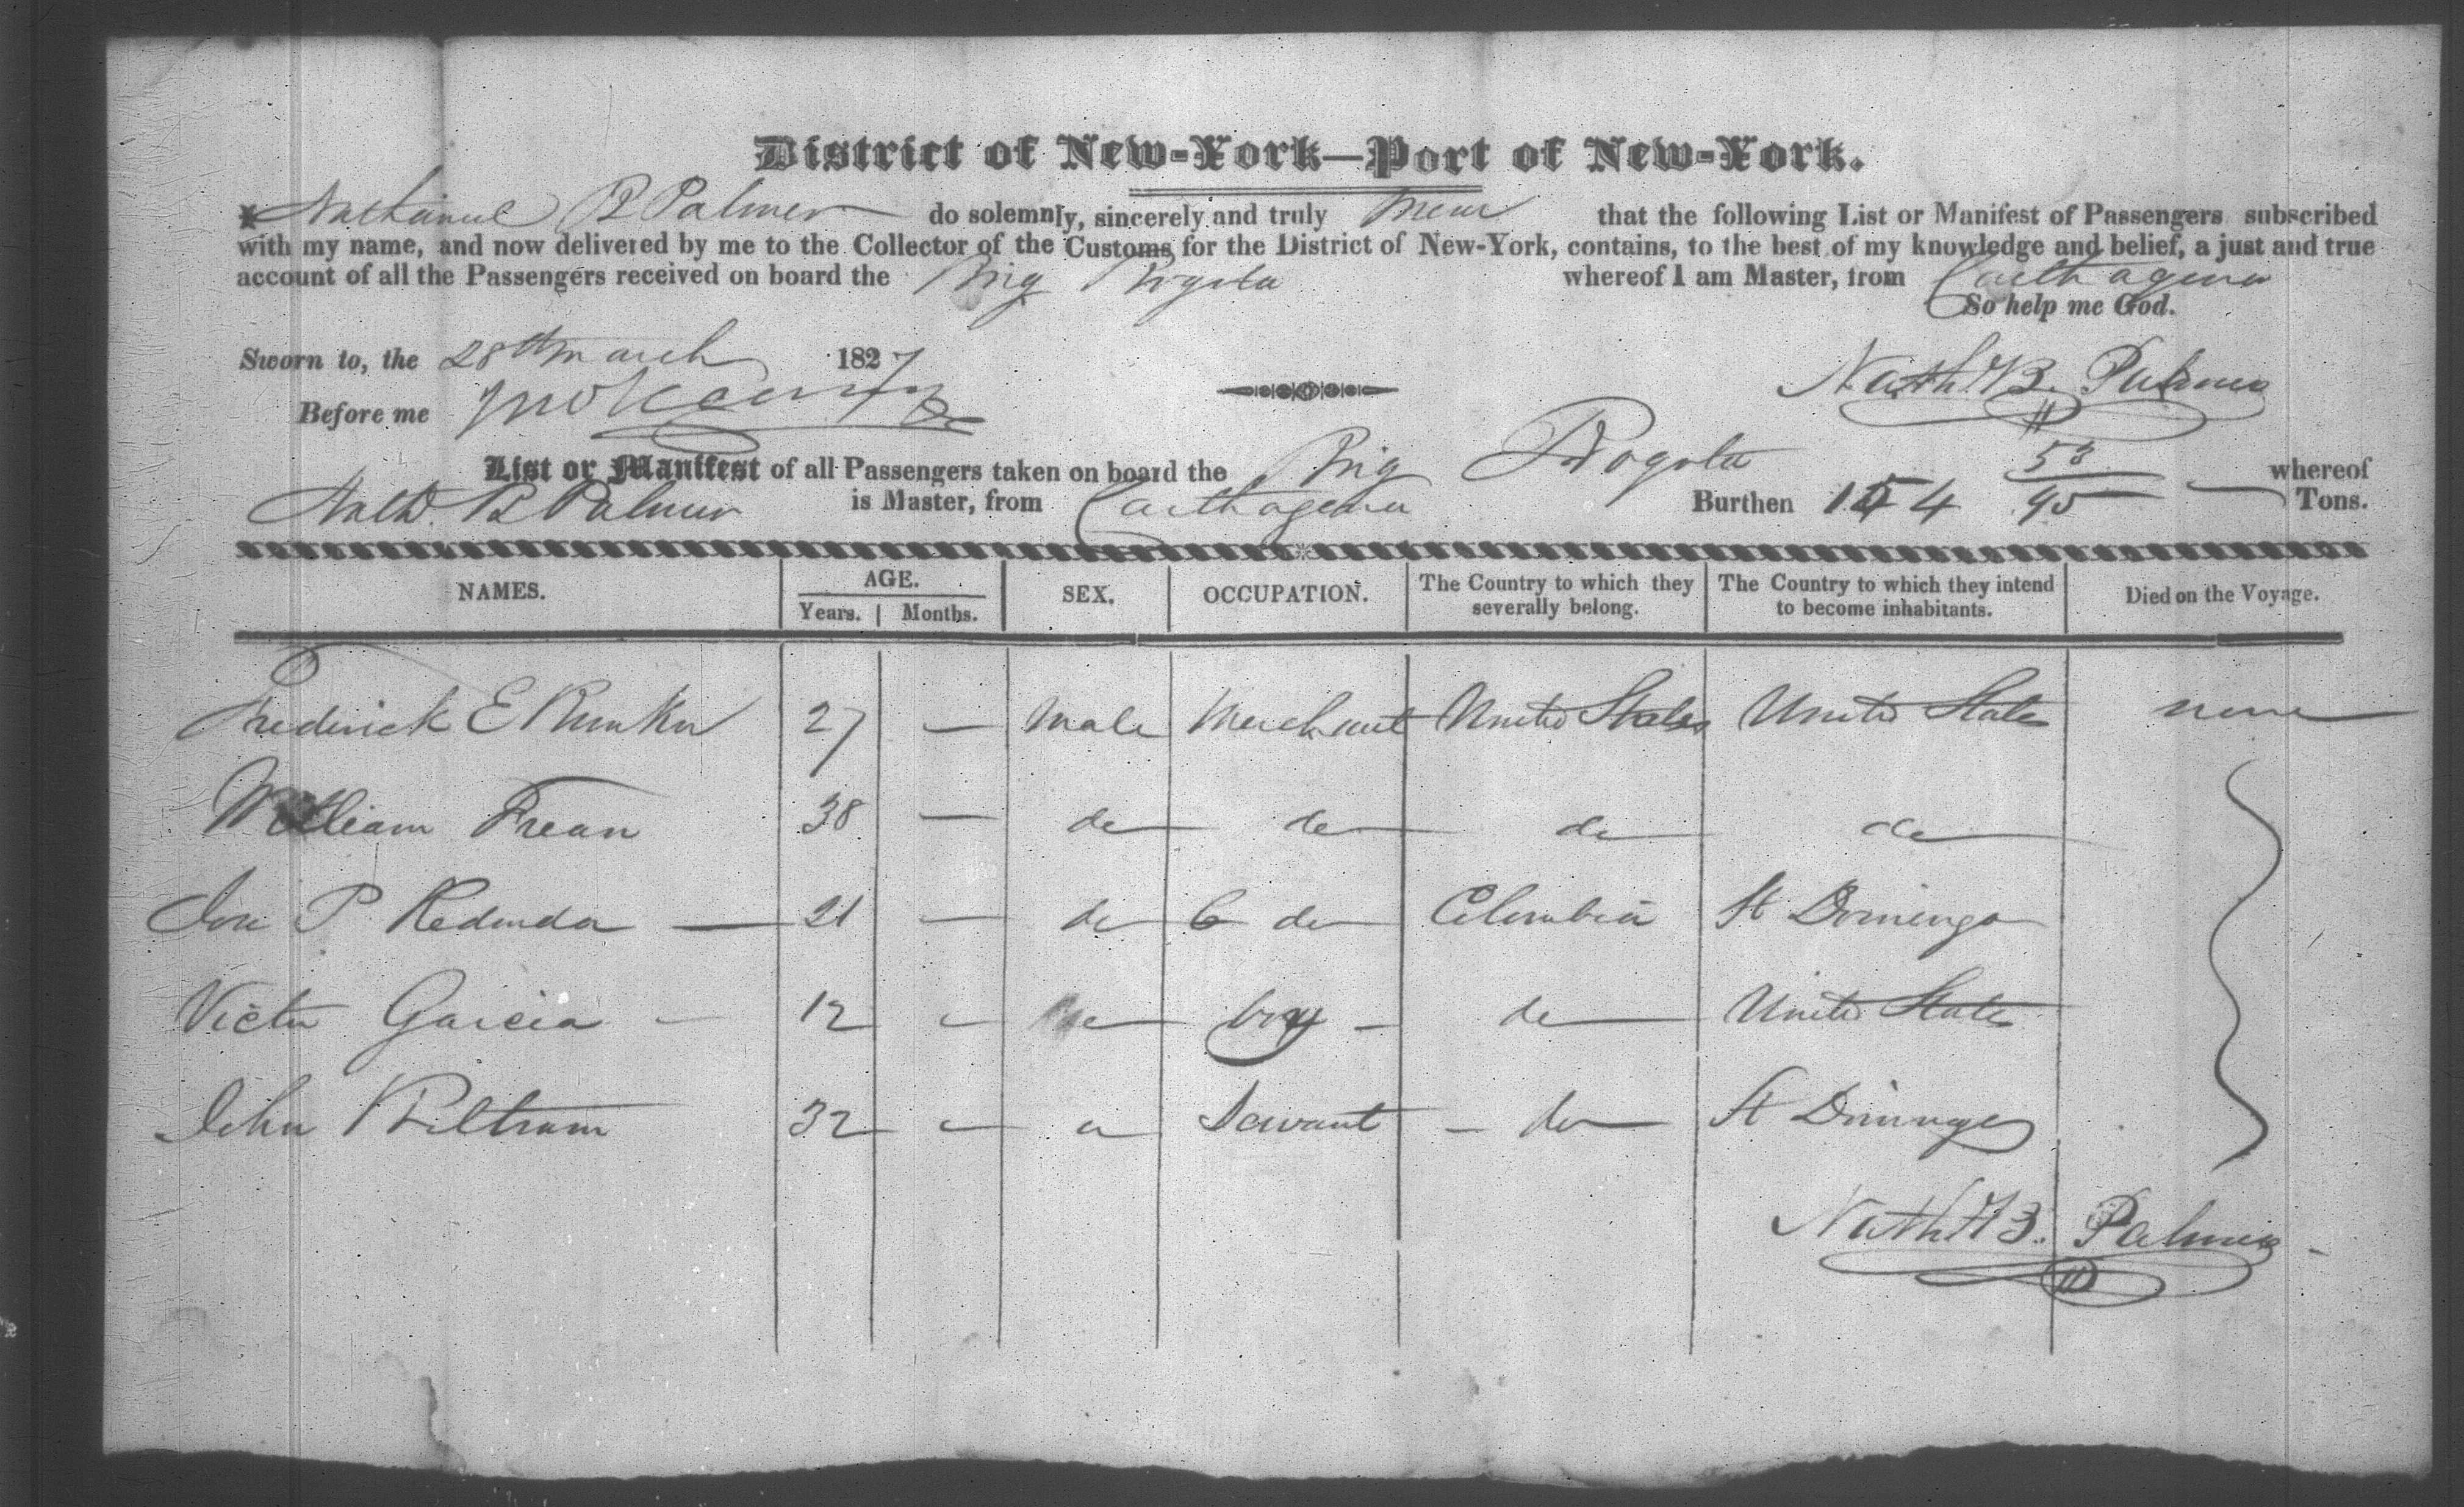 District of New-York—Port of New-York.
I Nathaniel B Palmer do solemnly, sincerely and truly swear that the following List or Manifest of Passengers subscribed
with my name, and now delivered by me to the Collector of the Customs for the District of New-York, contains, to the best of my knowledge and belief, a just and true
account of all the Passengers received on board the Brig Bogota whereof I am Master, from Carthagena
So help me God.
Sworn to, the 28th March 1827
Nathl B. Palmer
Before me
List or Manifest of all Passengers taken on board the Brig Bogota whereof
Nathl. B Palmer is Master, from Carthagena Burthen 154 53/95 Tons.
NAMES. AGE. SEX. OCCUPATION. The Country to which they severally belong. The Country to which they intend to become inhabitants. Died on the Voyage.
Years. Months.
Frederick E 27 — Male Merchant United States United States none
William Frean 38 — do do do do
P Redondo — 21 — do do Colombia St Domingo
Victor Garcia — 12 — boy — do United States
John Beltram 32 — Servant — do St Domingo
Nathl B. Palmer